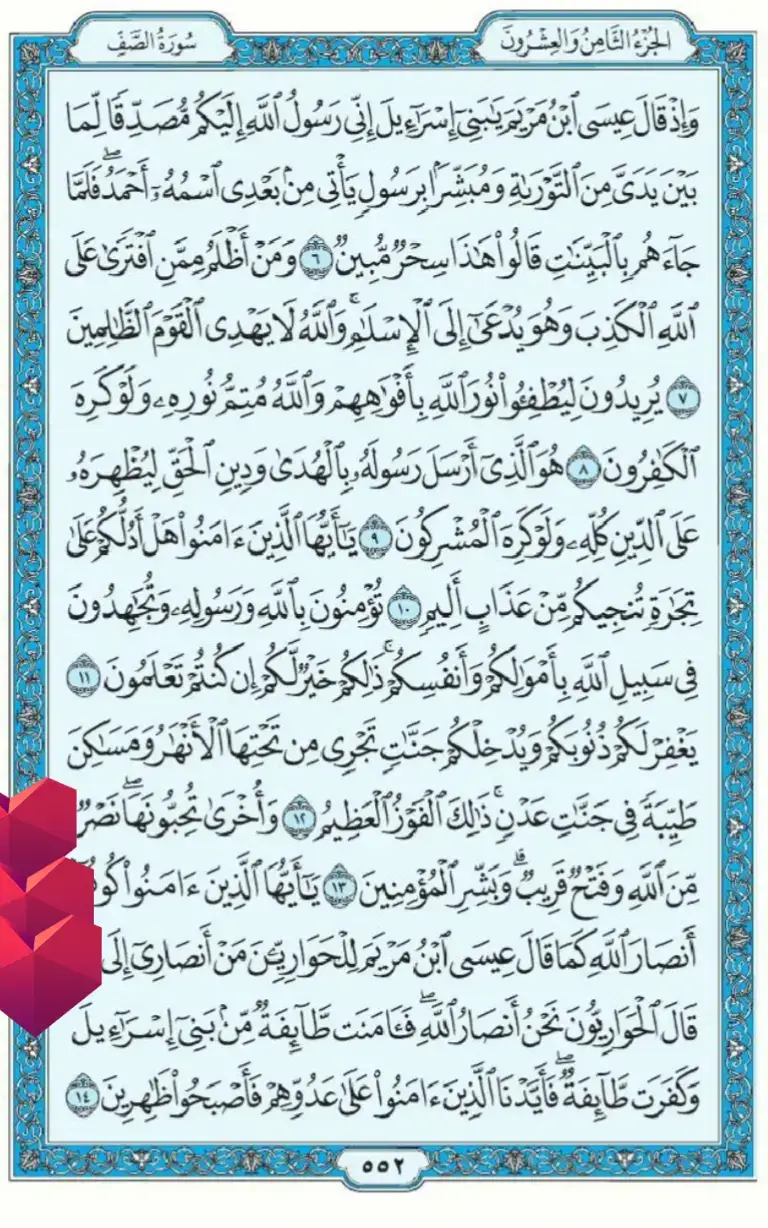 الجُزْءُ الثَّامِنُ وَالعِشْرُونَ
سُورَةُ الصَّفِّ
وَإِذْ قَالَ عِيسَى ٱبْنُ مَرْيَمَ يَٰبَنِىٓ إِسْرَٰٓءِيلَ إِنِّى رَسُولُ ٱللَّهِ إِلَيْكُم مُّصَدِّقًا لِّمَا
بَيْنَ يَدَىَّ مِنَ ٱلتَّوْرَىٰةِ وَمُبَشِّرًۢا بِرَسُولٍ يَأْتِى مِنۢ بَعْدِى ٱسْمُهُۥٓ أَحْمَدُ ۖ فَلَمَّا
جَآءَهُم بِٱلْبَيِّنَٰتِ قَالُوا۟ هَٰذَا سِحْرٌ مُّبِينٌ ٦ وَمَنْ أَظْلَمُ مِمَّنِ ٱفْتَرَىٰ عَلَى
ٱللَّهِ ٱلْكَذِبَ وَهُوَ يُدْعَىٰٓ إِلَى ٱلْإِسْلَٰمِ ۚ وَٱللَّهُ لَا يَهْدِى ٱلْقَوْمَ ٱلظَّٰلِمِينَ
٧ يُرِيدُونَ لِيُطْفِـُٔوا۟ نُورَ ٱللَّهِ بِأَفْوَٰهِهِمْ وَٱللَّهُ مُتِمُّ نُورِهِۦ وَلَوْ كَرِهَ
ٱلْكَٰفِرُونَ ٨ هُوَ ٱلَّذِىٓ أَرْسَلَ رَسُولَهُۥ بِٱلْهُدَىٰ وَدِينِ ٱلْحَقِّ لِيُظْهِرَهُۥ
عَلَى ٱلدِّينِ كُلِّهِۦ وَلَوْ كَرِهَ ٱلْمُشْرِكُونَ ٩ يَٰٓأَيُّهَا ٱلَّذِينَ ءَامَنُوا۟ هَلْ أَدُلُّكُمْ عَلَىٰ
تِجَٰرَةٍ تُنجِيكُم مِّنْ عَذَابٍ أَلِيمٍ ١٠ تُؤْمِنُونَ بِٱللَّهِ وَرَسُولِهِۦ وَتُجَٰهِدُونَ
فِى سَبِيلِ ٱللَّهِ بِأَمْوَٰلِكُمْ وَأَنفُسِكُمْ ۚ ذَٰلِكُمْ خَيْرٌ لَّكُمْ إِن كُنتُمْ تَعْلَمُونَ ١١
يَغْفِرْ لَكُمْ ذُنُوبَكُمْ وَيُدْخِلْكُمْ جَنَّٰتٍ تَجْرِى مِن تَحْتِهَا ٱلْأَنْهَٰرُ وَمَسَٰكِنَ
طَيِّبَةً فِى جَنَّٰتِ عَدْنٍ ۚ ذَٰلِكَ ٱلْفَوْزُ ٱلْعَظِيمُ ١٢ وَأُخْرَىٰ تُحِبُّونَهَا ۖ نَصْرٌ
مِّنَ ٱللَّهِ وَفَتْحٌ قَرِيبٌ ۗ وَبَشِّرِ ٱلْمُؤْمِنِينَ ١٣ يَٰٓأَيُّهَا ٱلَّذِينَ ءَامَنُوا۟
أَنصَارَ ٱللَّهِ كَمَا قَالَ عِيسَى ٱبْنُ مَرْيَمَ لِلْحَوَارِيِّۦنَ مَنْ أَنصَارِىٓ إِلَى
قَالَ ٱلْحَوَارِيُّونَ نَحْنُ أَنصَارُ ٱللَّهِ ۖ فَـَٔامَنَت طَّآئِفَةٌ مِّنۢ بَنِىٓ إِسْرَٰٓءِيلَ
وَكَفَرَت طَّآئِفَةٌ ۖ فَأَيَّدْنَا ٱلَّذِينَ ءَامَنُوا۟ عَلَىٰ عَدُوِّهِمْ فَأَصْبَحُوا۟ ظَٰهِرِينَ ١٤
٥٥٢